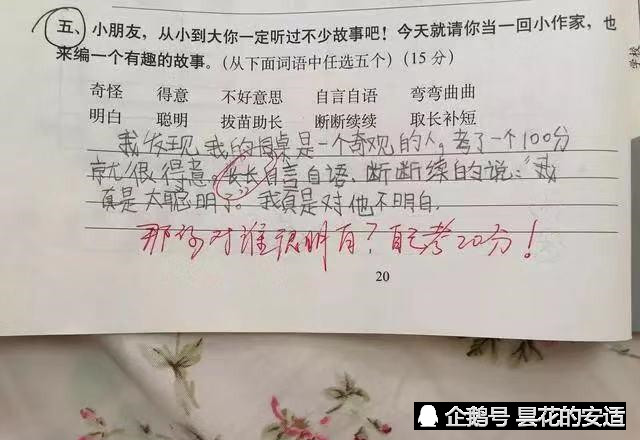 五、小朋友，从小到大你一定听过不少故事吧！今天就请你当一回小作家，也
来编一个有趣的故事。（从下面词语中任选五个）（15 分）
奇怪 得意 不好意思 自言自语 弯弯曲曲
明白 聪明 拔苗助长 断断续续 取长补短
我发现我的同桌是一个奇观的人，考了一个100分
就很得意。长长自言自语、断断续的说：“我
真是太聪明了。”我真是对他不明白.
那你对谁很明白？自己考20分！
20
学校
企鹅号 昙花的安适